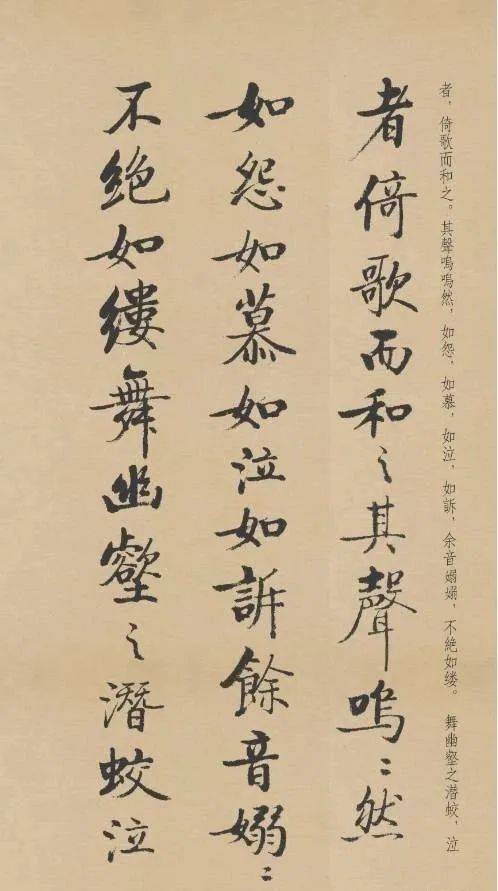 者，倚歌而和之。其聲嗚嗚然，如怨，如慕，如泣，如訴，余音嫋嫋，不絶如缕。 舞幽壑之潜蛟，泣
者倚歌而和之其聲嗚〻然
如怨如慕如泣如訴餘音嫋〻
不絕如縷舞幽壑之潛蛟泣